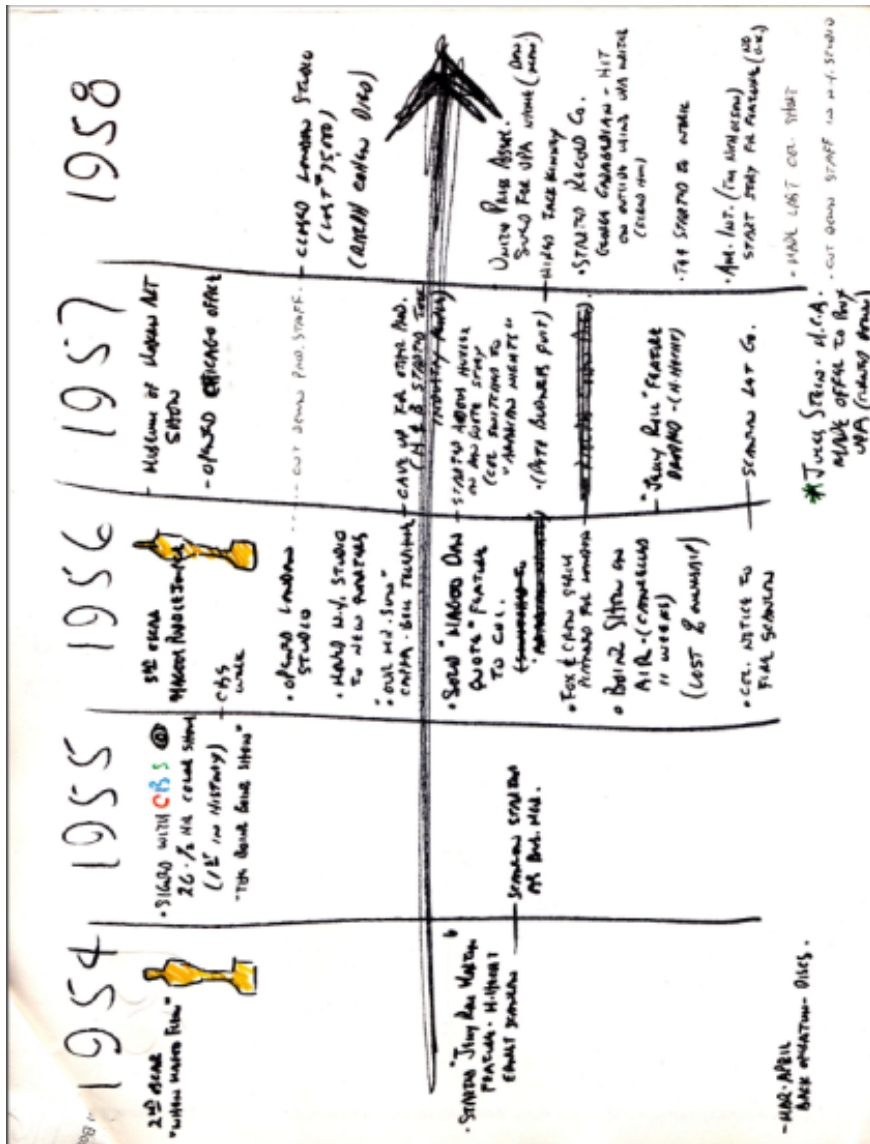 1954
2ND OSCAR
"WHEN MAGOO FLEW"
• STARTED "JELLY ROLL MORTON"
FEATURE - H. HURTZ
ERNEST SCANLON
- MAR - APRIL
BACK OPERATION - DISCS.
1955
• SIGNED WITH CBS
26 - 1/2 HR COLOR SHOW
(1ST IN HISTORY)
"THE BOING BOING SHOW"
SCANLON STARTED
AS BUS. MGR.
1956
3RD OSCAR
MAGOO'S PUDDLE JUMPER
- CBS
WALK
• OPENED LONDON
STUDIO
• MOVED N.Y. STUDIO
TO NEW QUARTERS
• "OUR MR. SUN"
CAPRA - BELL TELEPHONE
• SOLD "MAGOO DON
QUOTE" FEATURE
TO COL.
• FOX & CROW SERIES
PLANNED FOR LONDON
• BOING SHOW ON
AIR - (CANCELLED
11 WEEKS)
(LOST & OWNERSHIP)
• COL. NOTICE TO
FIRE SCANLON
1957
- MUSEUM OF MODERN ART
SHOW
- OPENED CHICAGO OFFICE
CUT DOWN PROD. STAFF.
- GAVE UP TV FOR PROD.
(H & B STARTED THE
INDUSTRY AGAIN)
- STARTED ALDOUS HUXLEY
ON DON QUOTE STORY
(COL SWITCHED TO
"ARABIAN NIGHTS"
• (PETE BURNESS QUIT)
• "JELLY ROLL" FEATURE
DROPPED - (H. HURTZ)
- SCANLON LET GO.
* JULES STEIN - M.C.A.
MADE OFFER TO BUY
UPA (TURNED DOWN)
1958
- CLOSED LONDON STUDIO
(LOST $75000)
(RALPH COHEN DIED)
• UNITED PRESS ASSOC.
SUED FOR UPA NAME
- HIRED JACK KINNEY
• STARTED RECORD CO.
ON OUTSIDE USING UPA WRITER
• TEE STARTED TO WORK
• AM. INT. (JIM NICHOLSON)
START STORY FOR FEATURE (NO
O.K.)
• MADE LAST COL. SHORT
• CUT DOWN STAFF IN N.Y. STUDIO